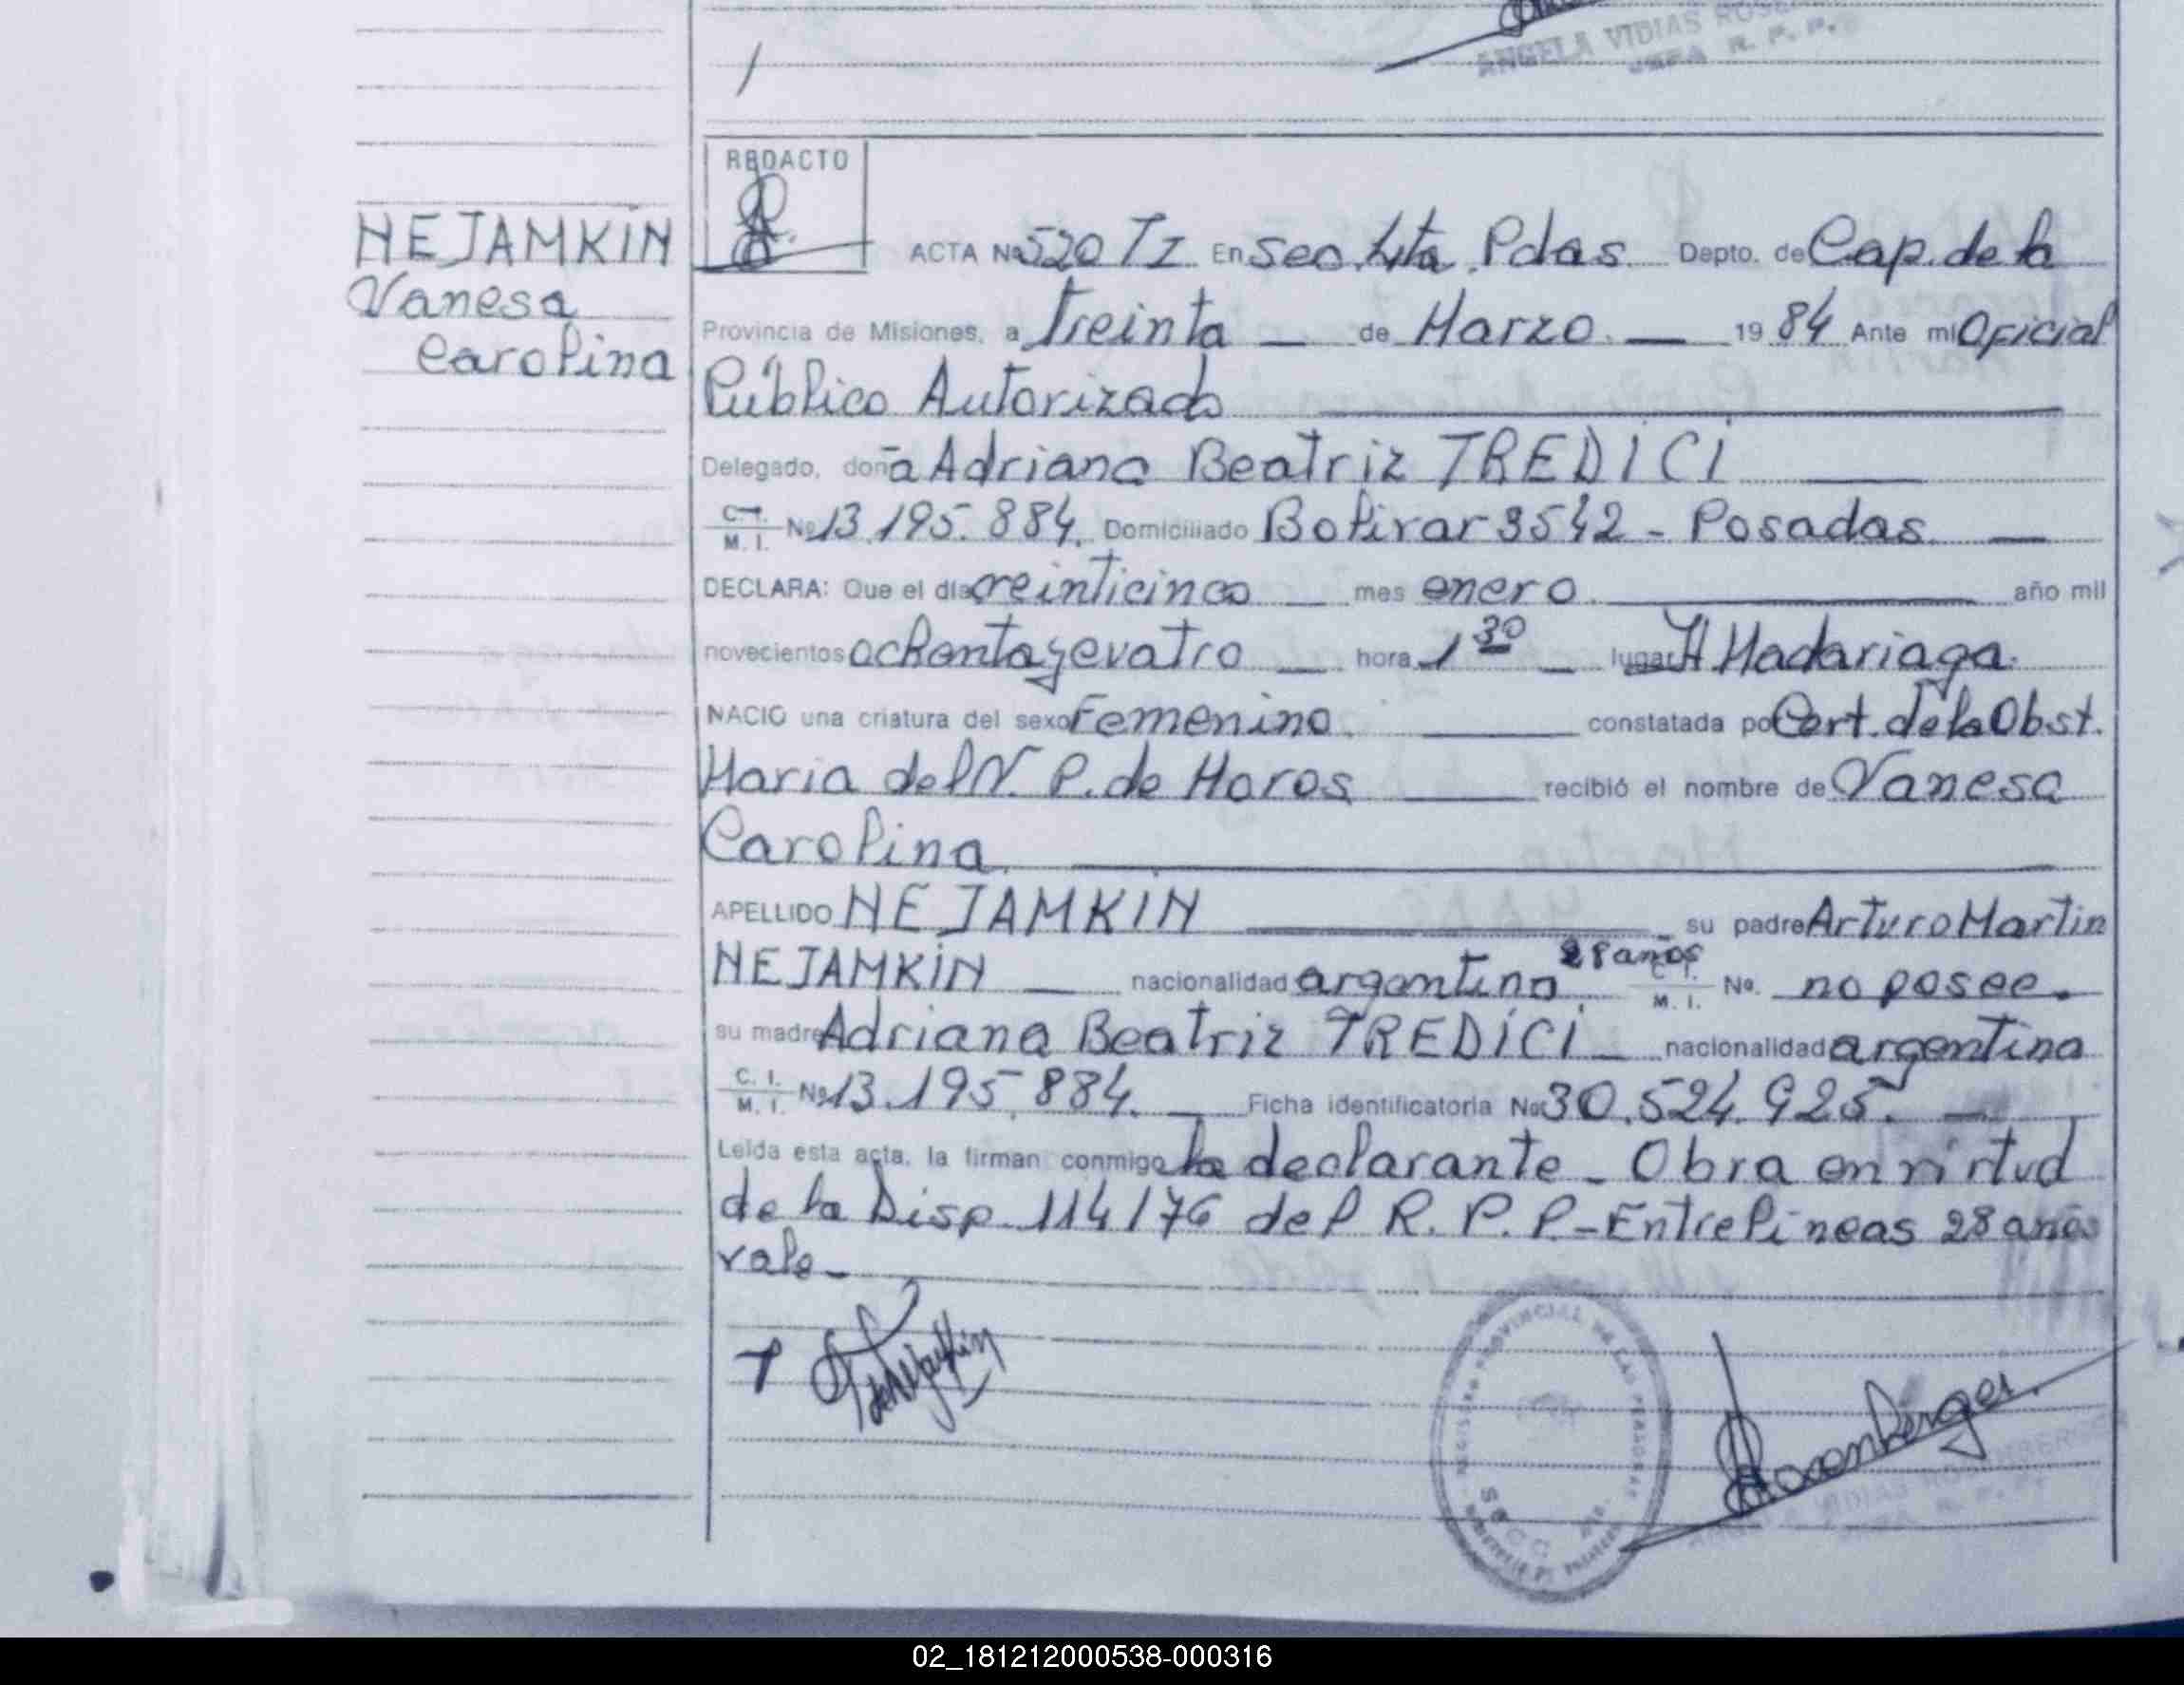 ANGELA VIDIAS
JEFA R. P. P.
REDACTO
NEJAMKIN
Vanesa
Carolina
ACTA Nº 520 TI En Sec. 4ta. Pdas. Depto. de Cap. de la
Provincia de Misiones, a Treinta — de Marzo. — 19 84 Ante mi Oficial
Público Autorizado
Delegado, doña Adriana Beatriz TREDICI
C. I. M. I. Nº 13.195.884. Domiciliado Bolivar 3542 - Posadas. —
DECLARA: Que el día veinticinco — mes enero. — año mil
novecientos ochenta y cuatro — hora 1 30 — lugar H Madariaga.
NACIO una criatura del sexo Femenino. — constatada por Cert. de la Obst.
Maria del N. P. de Moros — recibió el nombre de Vanesa
Carolina.
APELLIDO NEJAMKIN — su padre Arturo Martin
28 años
NEJAMKIN — nacionalidad argentino C. I. M. I. Nº. no posee.
su madre Adriana Beatriz TREDICI — nacionalidad argentina
C. I. M. I. Nº 13.195.884. — Ficha identificatoria Nº 30.524.925. —
Leída esta acta, la firman conmigo la declarante - Obra en virtud
de la Disp. 114/76 del R. P. P. - Entrelineas 28 años
vale -
REGISTRO PROVINCIAL DE LAS PERSONAS
Rosenberger
02_181212000538-000316